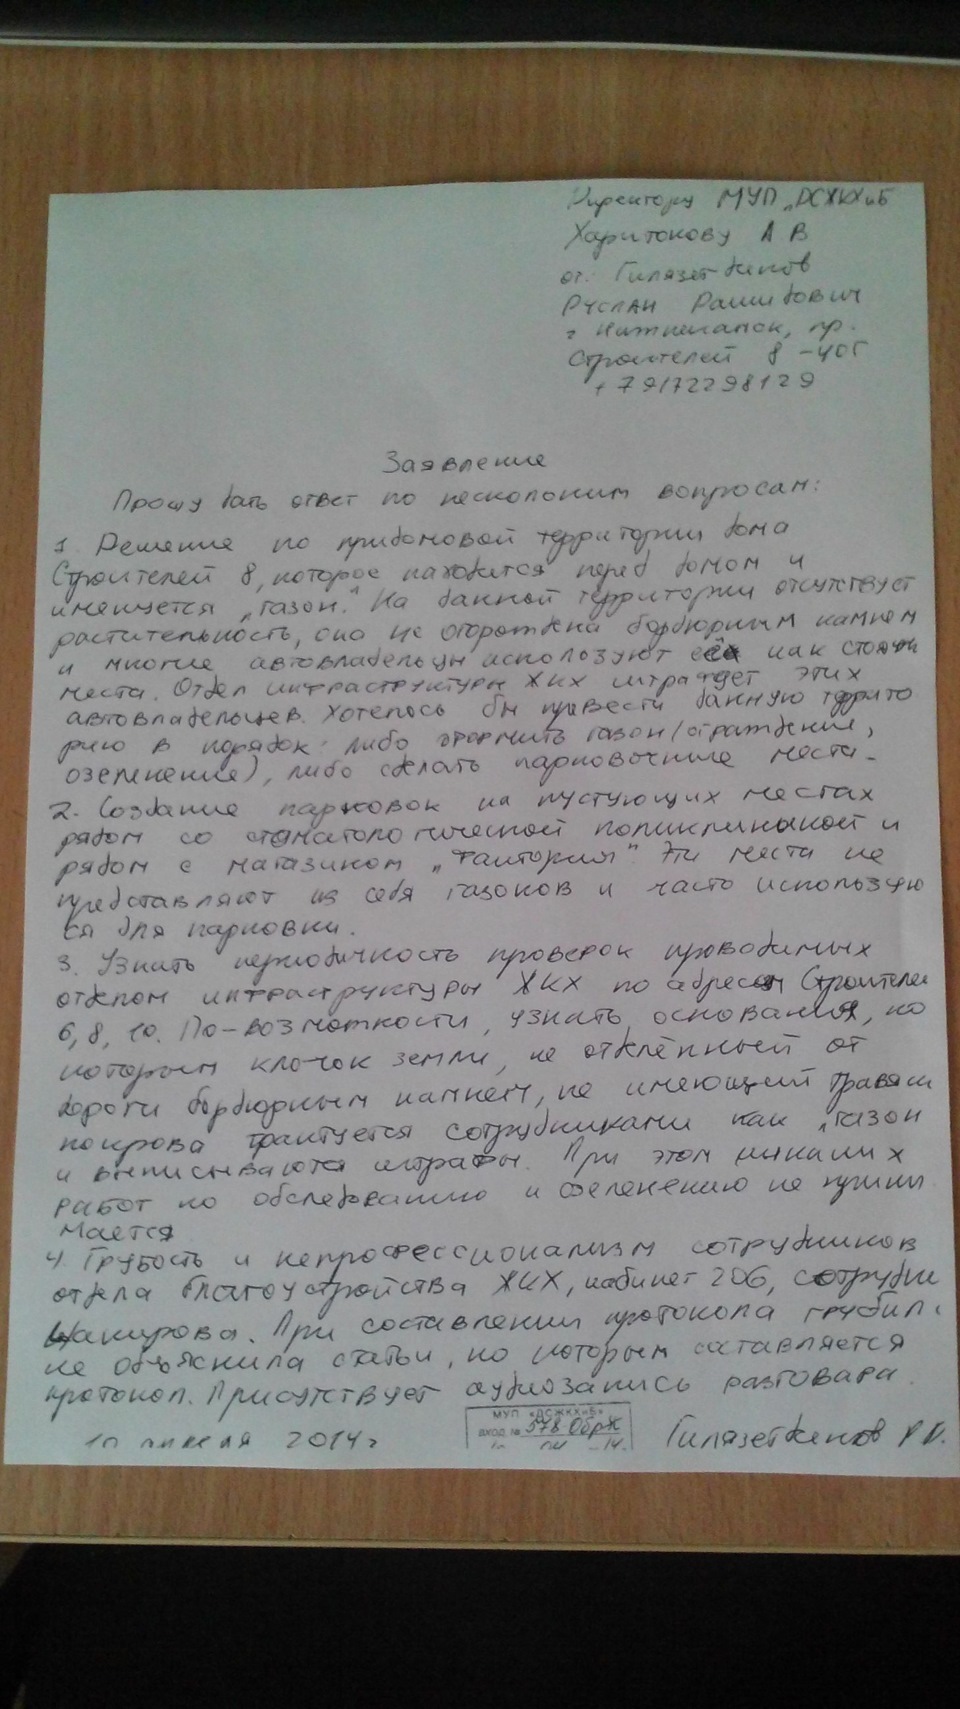 Директору МУП „ДСЖКХиБ
Харитонову А В
от. Гилязетдинов
Руслан Рашидович
г Нижнекамск, пр.
Строителей 8 -405
+79172298129
Заявление
Прошу дать ответ по нескольким вопросам:
1. Решение по придомовой территории дома
Строителей 8, которое находится перед домом и
именуется „газон." На данной территории отсутствует
растительность, она не огорожена бордюрным камнем
и многие автовладельцы используют её как стояч
места. Отдел инфраструктуры ЖКХ штрафует этих
автовладельцев. Хотелось бы привести данную террито
рию в порядок: либо оформить газон/ограждение,
озеленение), либо сделать парковочные места.
2. Создание парковок на пустующих местах
рядом со стоматологической поликлиникой и
рядом с магазином „Фантория". Эти места не
представляют из себя газонов и часто использую
ся для парковки.
3. Узнать периодичность проверок проводимых
отделом инфраструктуры ЖКХ по адресам Строителей
6, 8, 10. По-возможности, узнать основания, по
которым клочок земли, не отделённый от
дороги бордюрным камнем, не имеющий травян
покрова трактуется сотрудниками как „газон
и выписываются штрафы. При этом никаких
работ по обследованию и озеленению не прини
мается
4. Грубость и непрофессионализм сотрудников
отдела благоустройства ЖКХ, кабинет 206, сотрудни
Шакирова. При составлении протокола грубил
не объяснила статьи, по которым составляется
протокол. Присутствует аудиозапись разговара.
МУП «ДСЖКХиБ»
ВХОД № 578 ОбрЖ
10 апреля 2014г
Гилязетдинов Р Р.